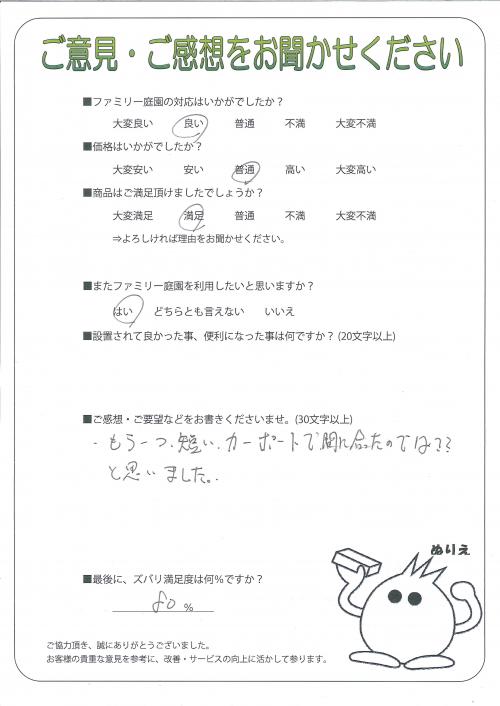 ご意見・ご感想をお聞かせください
■ファミリー庭園の対応はいかがでしたか？
大変良い 良い 普通 不満 大変不満
■価格はいかがでしたか？
大変安い 安い 普通 高い 大変高い
■商品はご満足頂けましたでしょうか？
大変満足 満足 普通 不満 大変不満
⇒よろしければ理由をお聞かせください。
■またファミリー庭園を利用したいと思いますか？
はい どちらとも言えない いいえ
■設置されて良かった事、便利になった事は何ですか？(20文字以上)
■ご感想・ご要望などをお書きくださいませ。(30文字以上)
・もう一つ、短い、カーポートで間に合ったのでは??
と思いました。
ぬりえ
■最後に、ズバリ満足度は何％ですか？
80 %
ご協力頂き、誠にありがとうございました。
お客様の貴重な意見を参考に、改善・サービスの向上に活かして参ります。